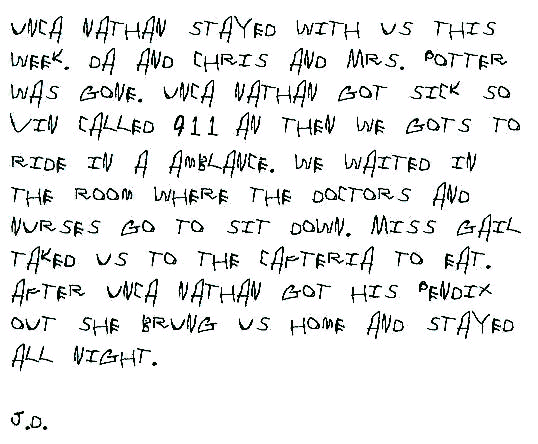 UNCA NATHAN STAYED WITH US THIS
WEEK. DA AND CHRIS AND MRS. POTTER
WAS GONE. UNCA NATHAN GOT SICK SO
VIN CALLED 911 AN THEN WE GOTS TO
RIDE IN A AMBLANCE. WE WAITED IN
THE ROOM WHERE THE DOCTORS AND
NURSES GO TO SIT DOWN. MISS GAIL
TAKED US TO THE CAFTERIA TO EAT.
AFTER UNCA NATHAN GOT HIS PENDIX
OUT SHE BRUNG US HOME AND STAYED
ALL NIGHT.
J.D.